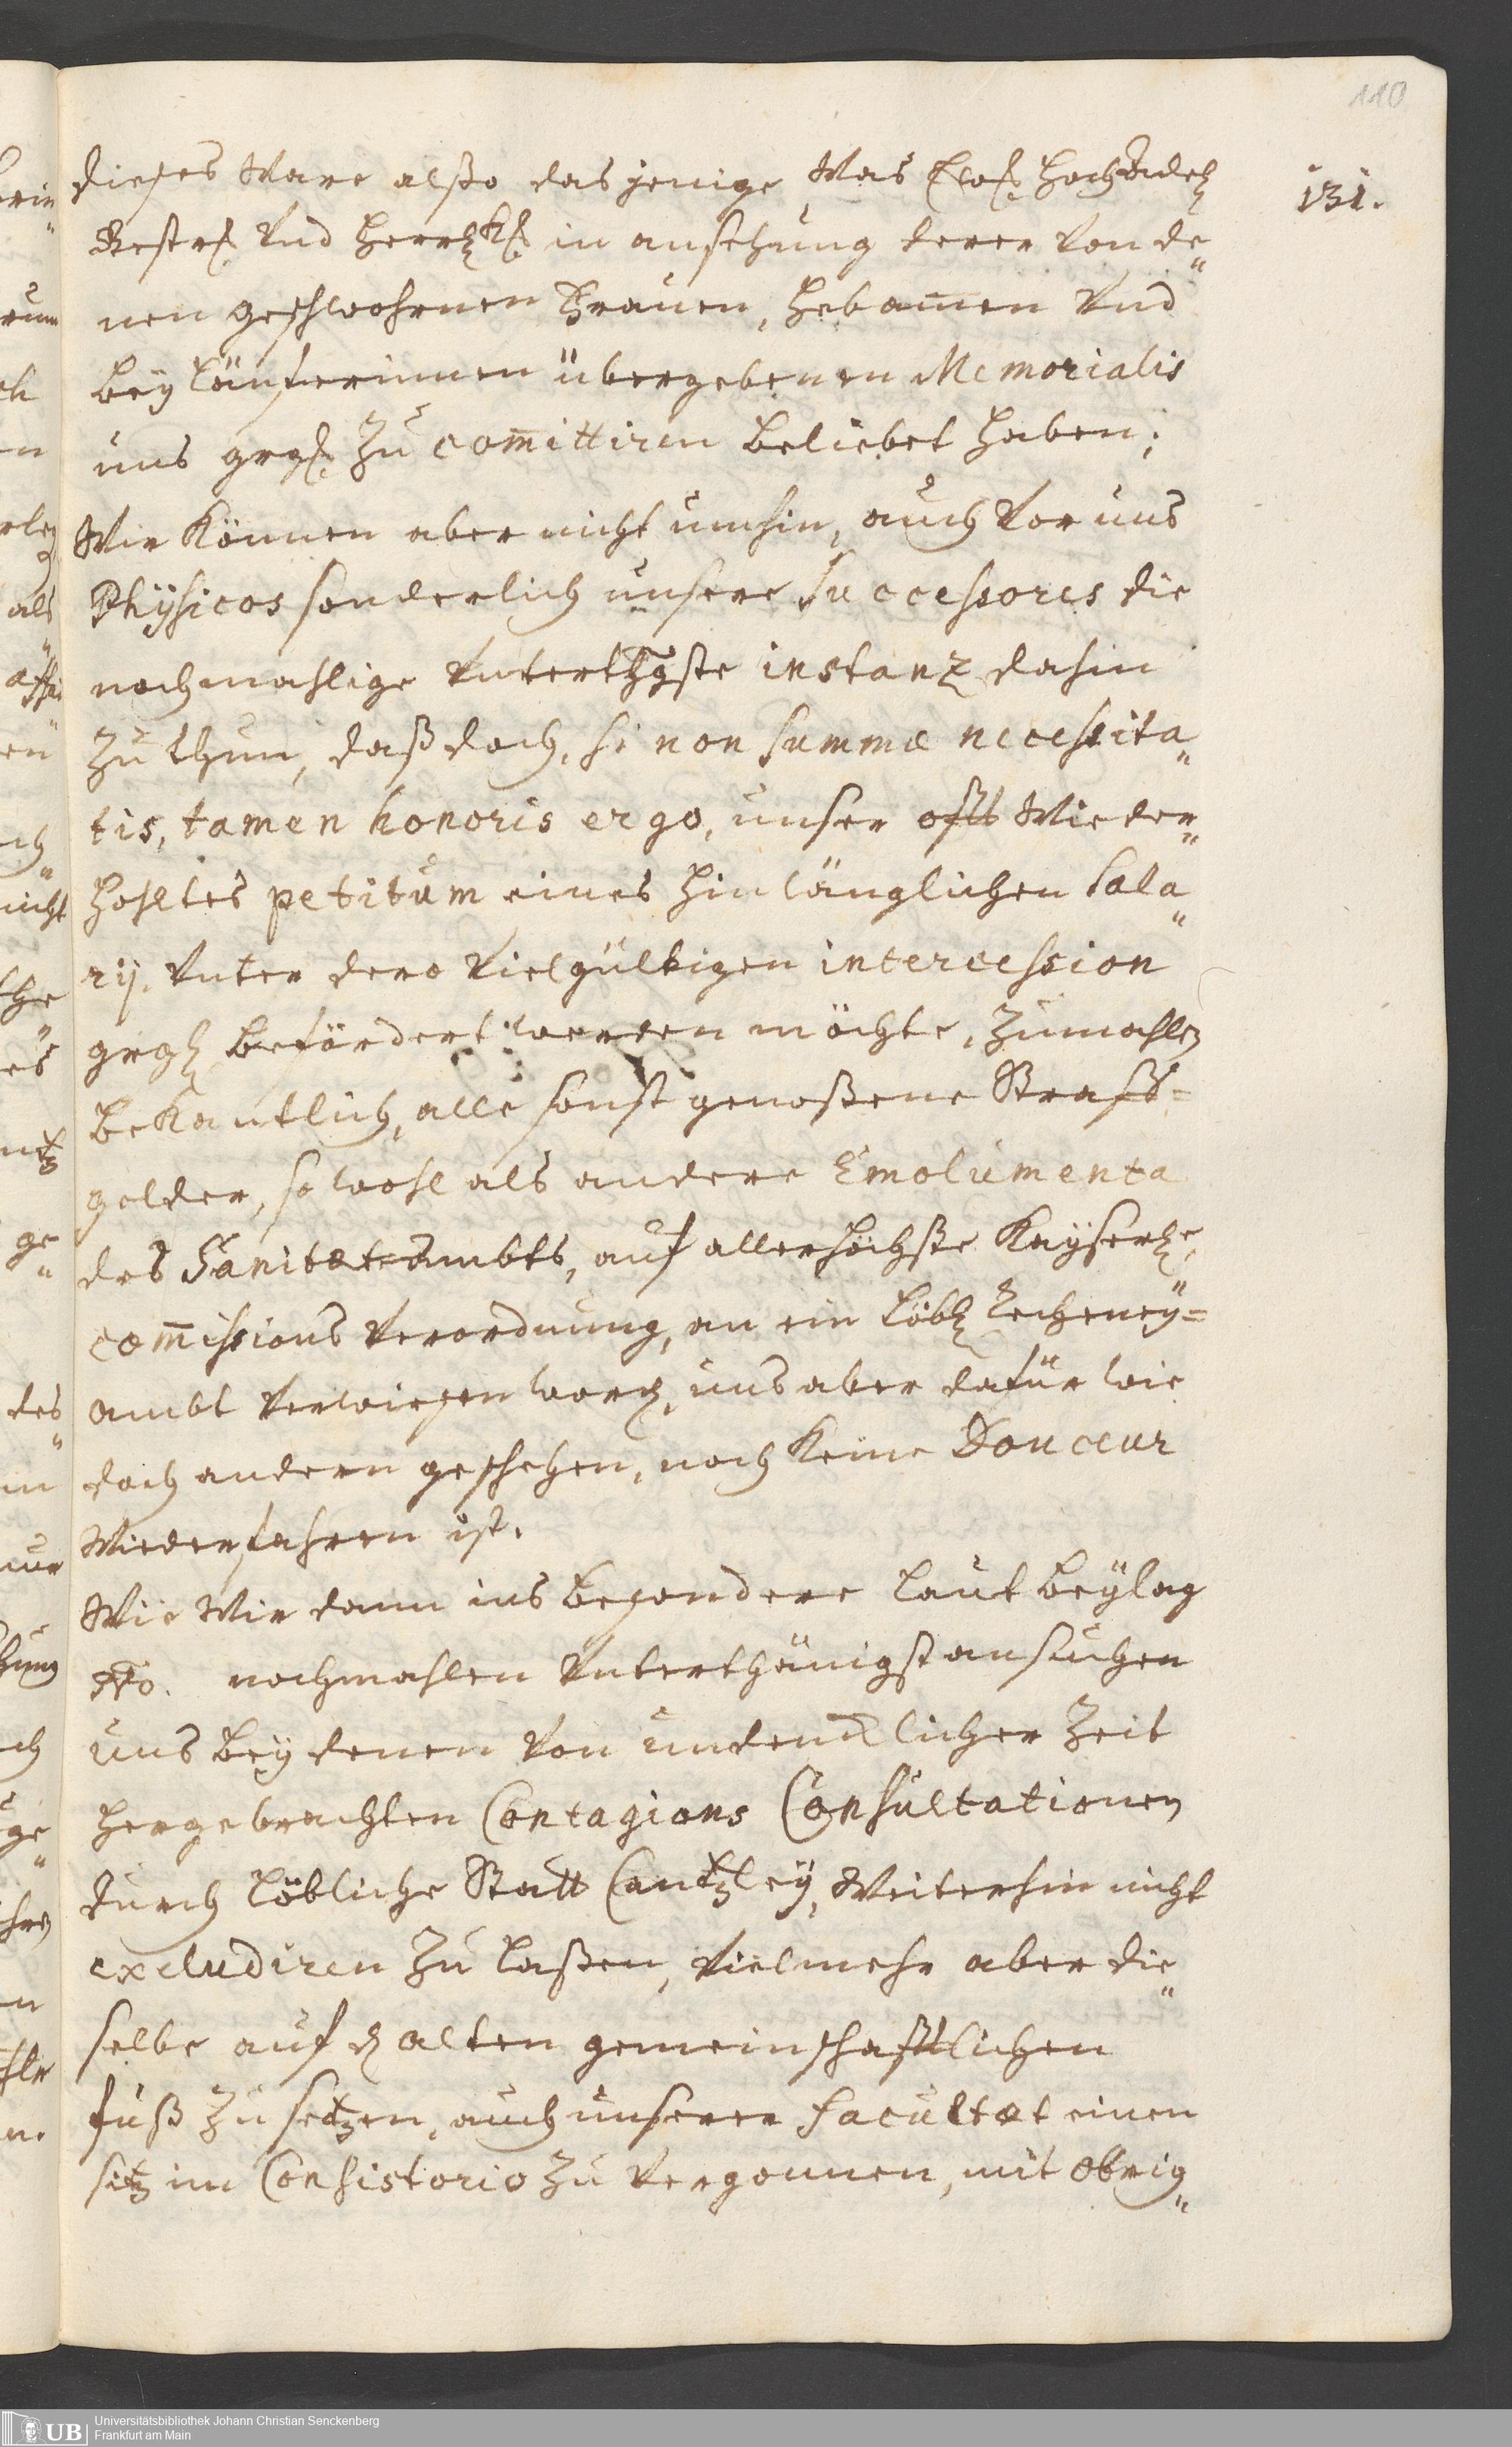 110
131.
dieses Ware alßo das jenige, Was Ewr. HochAdel.
Gestr. Und Herrl.kt. in ansehung derer Von de„
nen geschwohrnen Frauen, Hebam̅en Und
Beyläuferinnen übergebenen Memorialis
uns grgst. Zu com̅ittiren Beliebet haben;
Wir Können aber nicht umhin, auch Vor uns
Physicos sonderlich unsere Successores die
nochmahlige Unterthgste instanz dahin
Zu thun, daß doch, si non summæ necessita„
tis, tamen honoris ergo, unser offt Wieder„
hohltes petitum eines hinlänglichen Sala„
rij, Unter dero Vielgültigen intercession
grgl. Befördert werden möchte, Zumahlen
Bekantlich, alle sonst genoßene Straff=
gelder, so wohl als andere Emolumenta
des Sanitætsambts, auf allerhöchste Kayserle.
com̅issions Verordnung, an ein Löbl. Recheney=
ambt Verwiesen word., uns aber dafür wie
doch andern geschehen, noch Keine Douceur
Wiederfahren ist.
Wie Wir dann ins Besondere laut Beylag
No. nochmahlen Unterthänigst ansuchen
uns Bey denen Von undencklicher Zeit
hergebrachten Contagions Consultationen
durch Löbliche Statt Cantzley, Weiterhin nicht
excludiren Zu laßen, Vielmehr aber die„
selbe auf d. alten gemeinschafftlichen
fuß Zu setzen, auch unserer Facultæt einen
sitz im Consistorio Zu Vergonnen, mit Obrig„
UB
Universitätsbibliothek Johann Christian Senckenberg
Frankfurt am Main